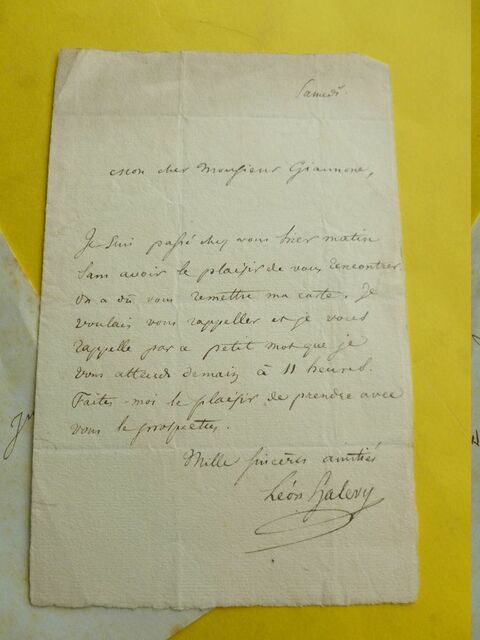 Samedi.
Mon cher Monsieur Giannone,
Je suis passé chez vous hier matin
sans avoir le plaisir de vous rencontrer.
On a dû vous remettre ma carte. Je
voulais vous rappeller et je vous
rappelle par ce petit mot que je
vous attends demain à 11 heures.
Faites-moi le plaisir de prendre avec
vous le prospectus.
Mille sincères amitiés
Léon Halevy